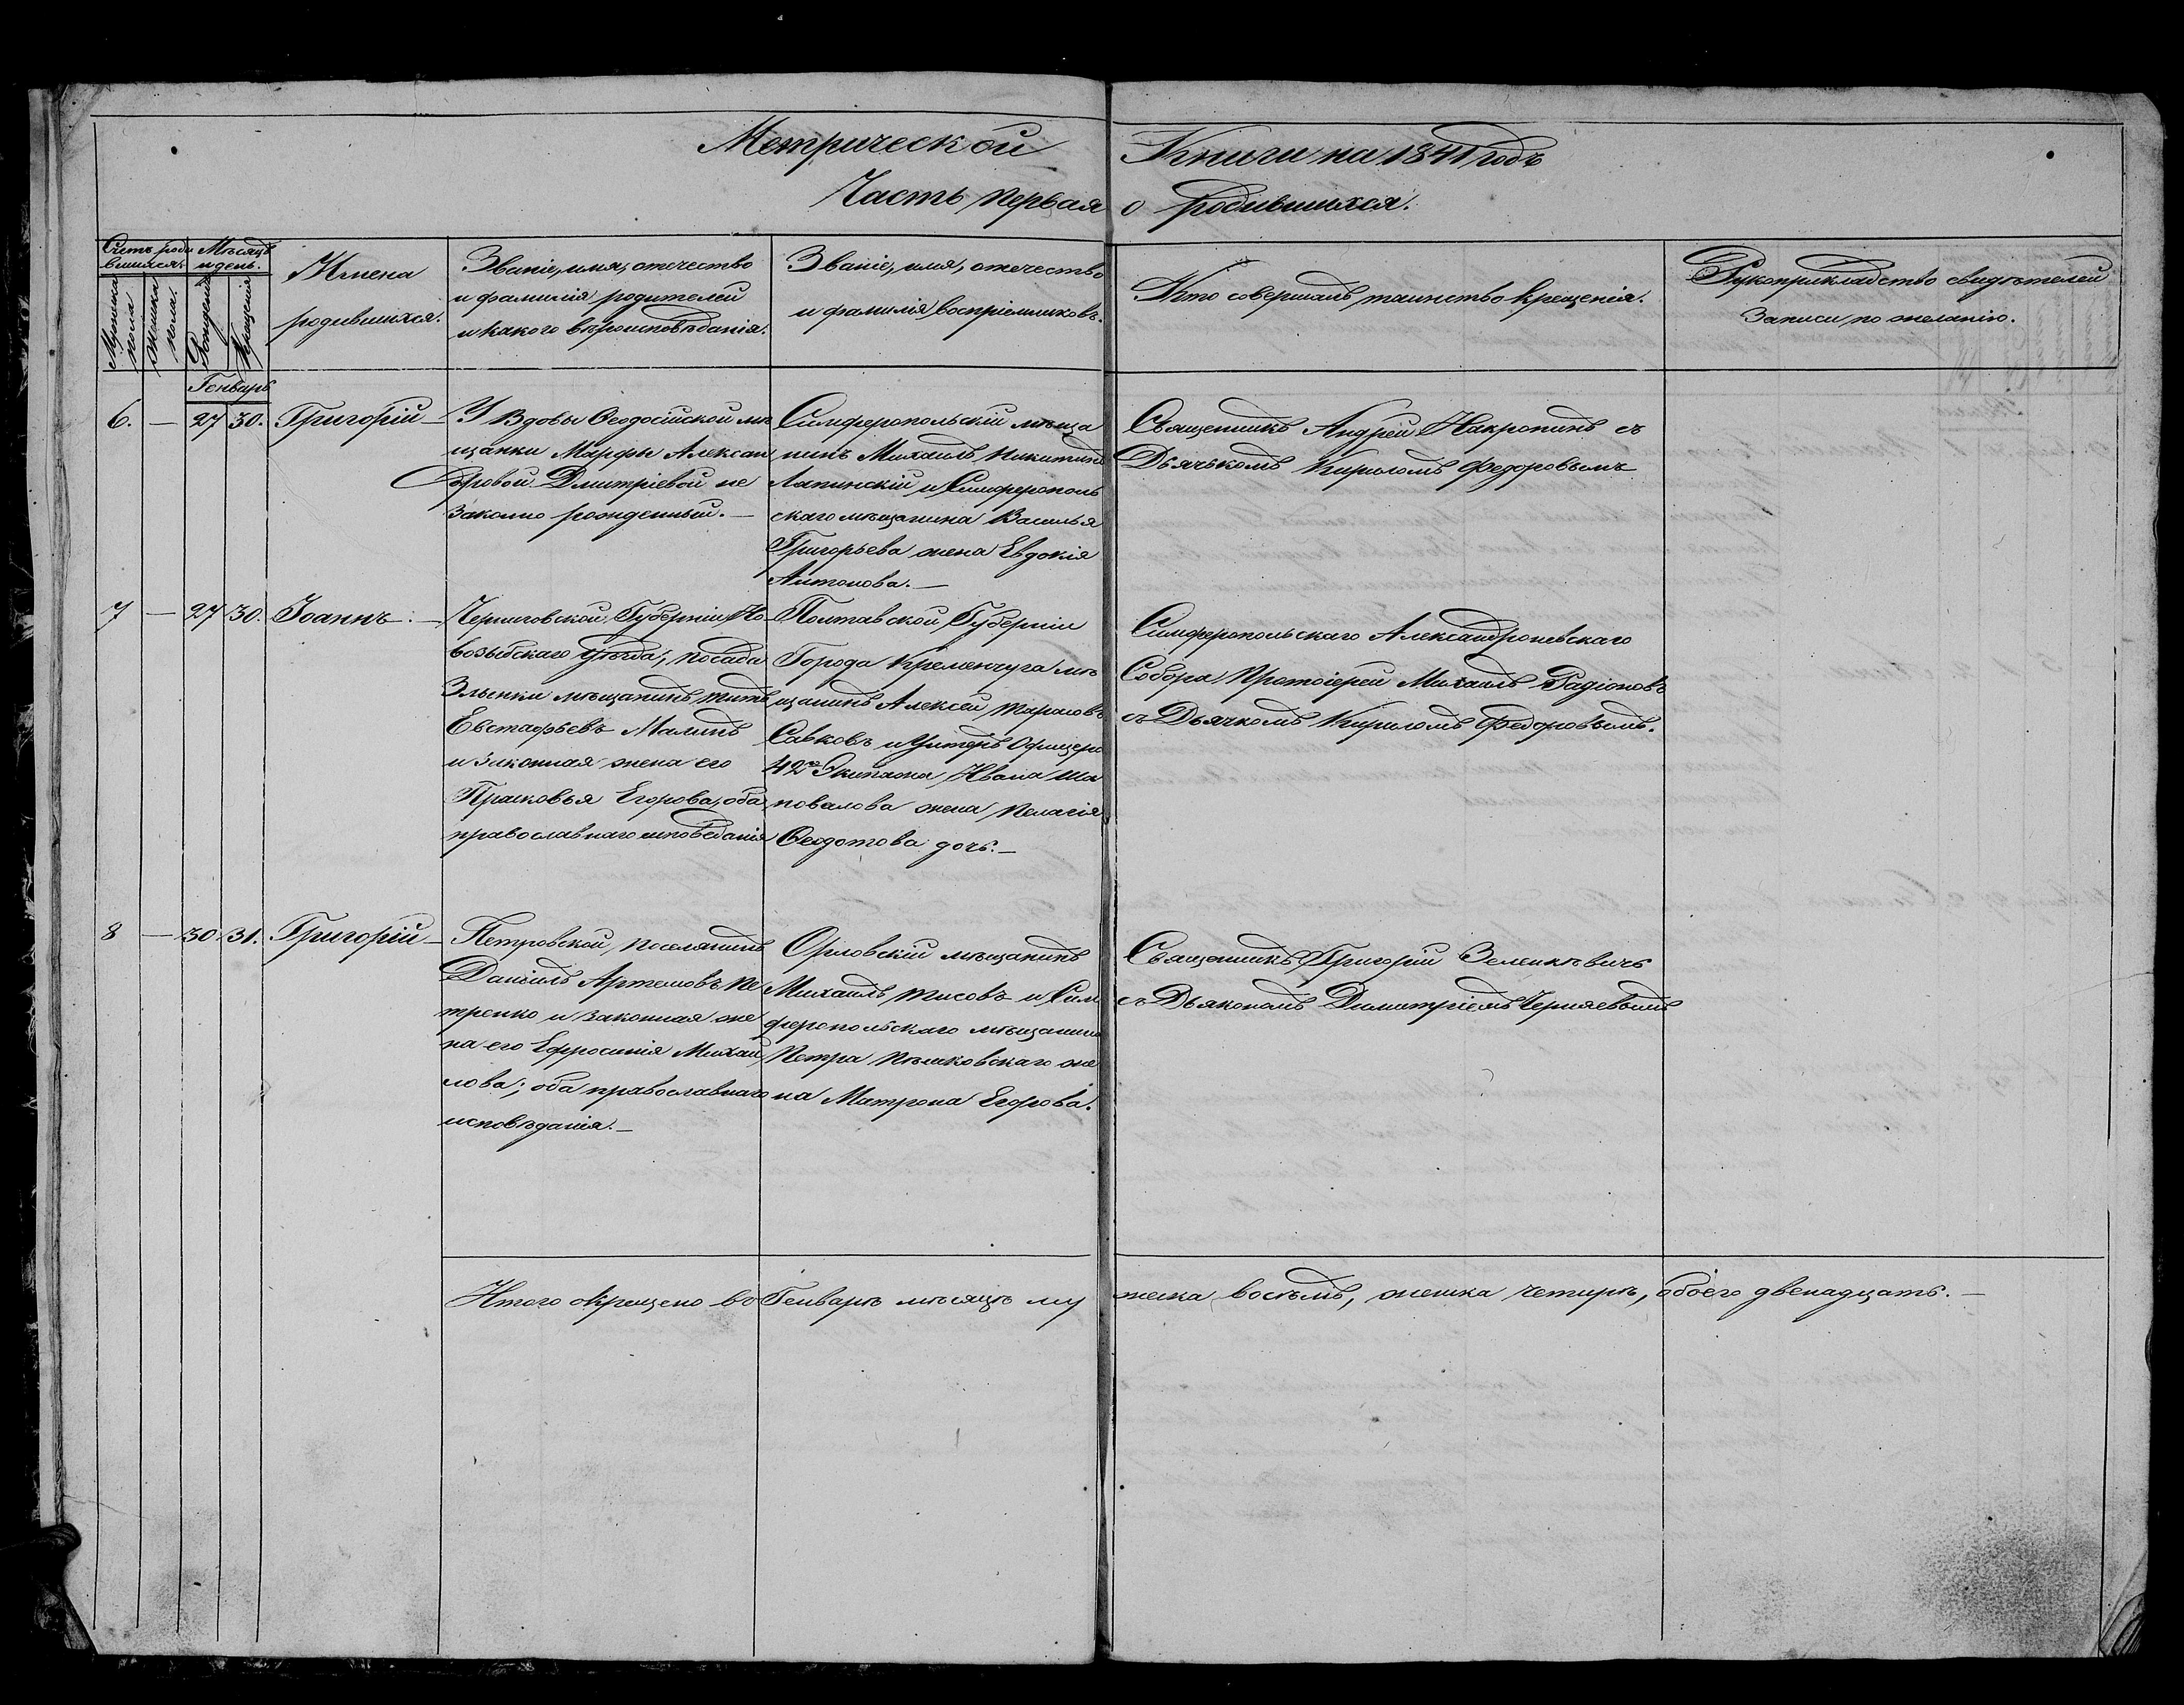 Метрической Книги на 1841 годъ
Часть первая о родившихся.
Счетъ роди
вшихся.
Мужеска
пола
Женска
пола.
Мѣсяцъ
и день.
Рожденія
Крещенія
Имена
родившихся.
Званіе, имя, отечество
и фамилія родителей
и какого вѣроисповѣданія.
Званіе, имя, отечество
и фамилія воспріемниковъ.
Кто совершалъ таинство крещенія.
Рукоприкладство свидѣтелей
записи по желанію.
Генварь
6. — 27 30. Григорій —
У Вдовы Ѳеодосійской мѣ
щанки Марфы Алексан
дровой Дмитріевой не
законно рожденный. —
Симферопольскій мѣща
нинъ Михаилъ Никитинъ
Лапинскій и Симферополь
скаго мѣщанина Василья
Григорьева жена Евдокія
Антонова. —
Священникъ Андрей Накропинъ съ
Дьячькомъ Кириломъ Федоровымъ
7 — 27 30. Іоаннъ. —
Черниговской Губерніи Но
возыбскаго уѣзда, посада
Злынки мѣщанинъ Титъ
Евстафьевъ Малинъ
и законная жена его
Прасковья Егорова, оба
православнаго исповеданія
Полтавской Губерніи
Города Кременчуга мѣ
щанинъ Алексей Тарасовъ
Савковъ и Унтеръ Офицера
42го Экипажа Ивана Ша
повалова жена Пелагія
Ѳеодотова дочь. —
Симферопольскаго Александроневскаго
Собора Протоіерей Михаилъ Радіоновъ
съ Дьячкомъ Кириломъ Федоровымъ.
8 — 30 31. Григорій —
Петровской поселянинъ
Даніилъ Артемовъ Пе
тренко и законная же
на его Ефросинія Михай
лова; оба православнаго
исповѣданія. —
Орловскій мѣщанинъ
Михаилъ Тисовъ и Сим
феропольскаго мѣщанина
Петра Пѣшковскаго же
на Матрона Егорова.
Священникъ Григорій Зеленкѣвичь
съ Дьякономъ Димитріемъ Черняевымъ
Итого окрещено въ Генварѣ мѣсяцѣ му жеска восемь, женска четырѣ, обоего двенадцать. —